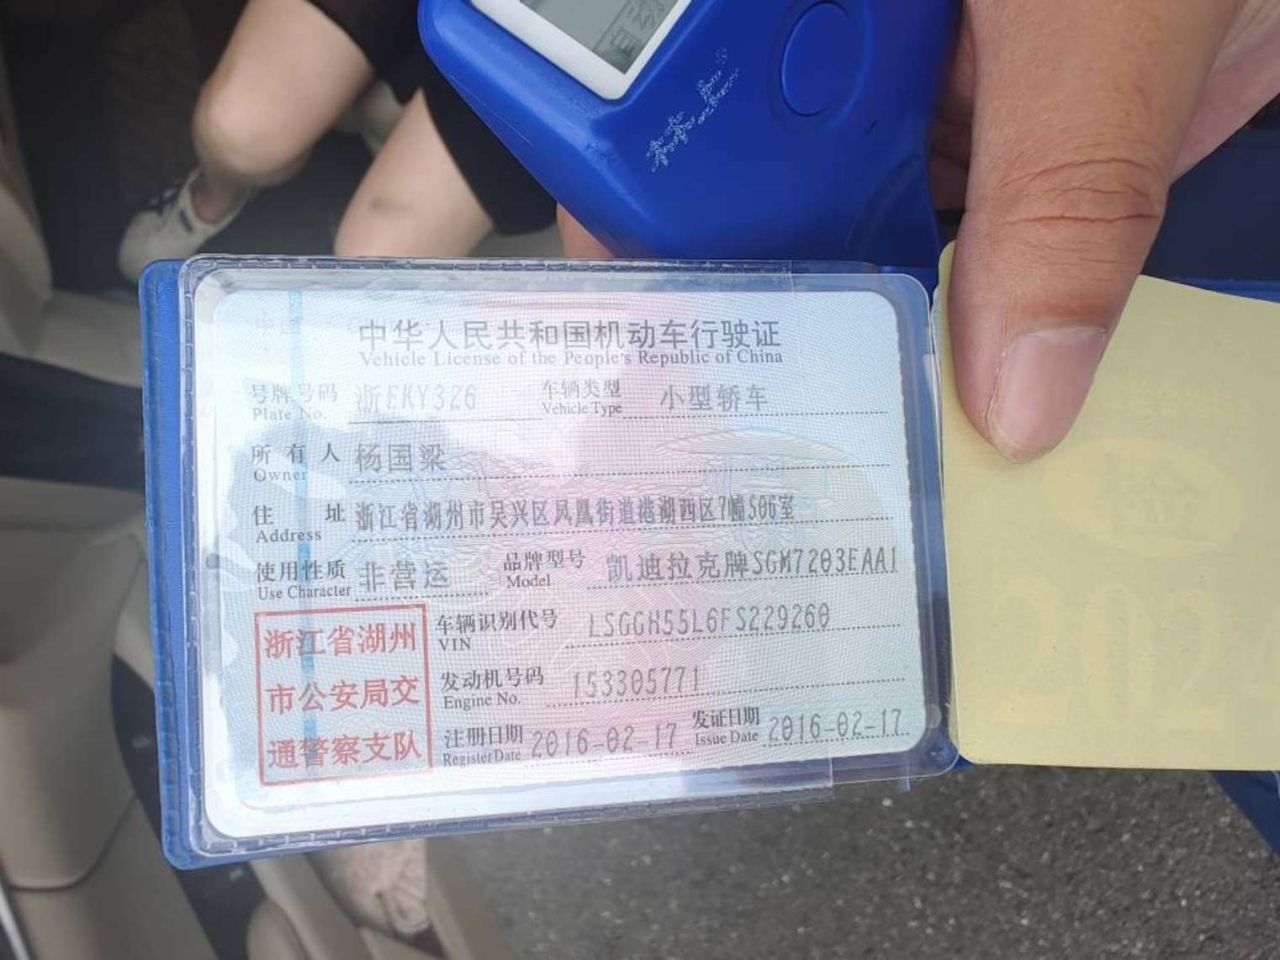 自动
中华人民共和国机动车行驶证
Vehicle License of the People's Republic of China
号牌号码 浙EKY326 车辆类型 小型轿车
Plate No. Vehicle Type
所有人 杨国梁
Owner
住址 浙江省湖州市吴兴区凤凰街道港湖西区7幢506室
Address
使用性质 非营运 品牌型号 凯迪拉克牌SGM7203EAA1
Use Character Model
浙江省湖州
市公安局交
通警察支队
车辆识别代号 LSGGH55L6FS229260
VIN
发动机号码 153305771
Engine No.
注册日期 2016-02-17 发证日期 2016-02-17
Register Date Issue Date
检
2024